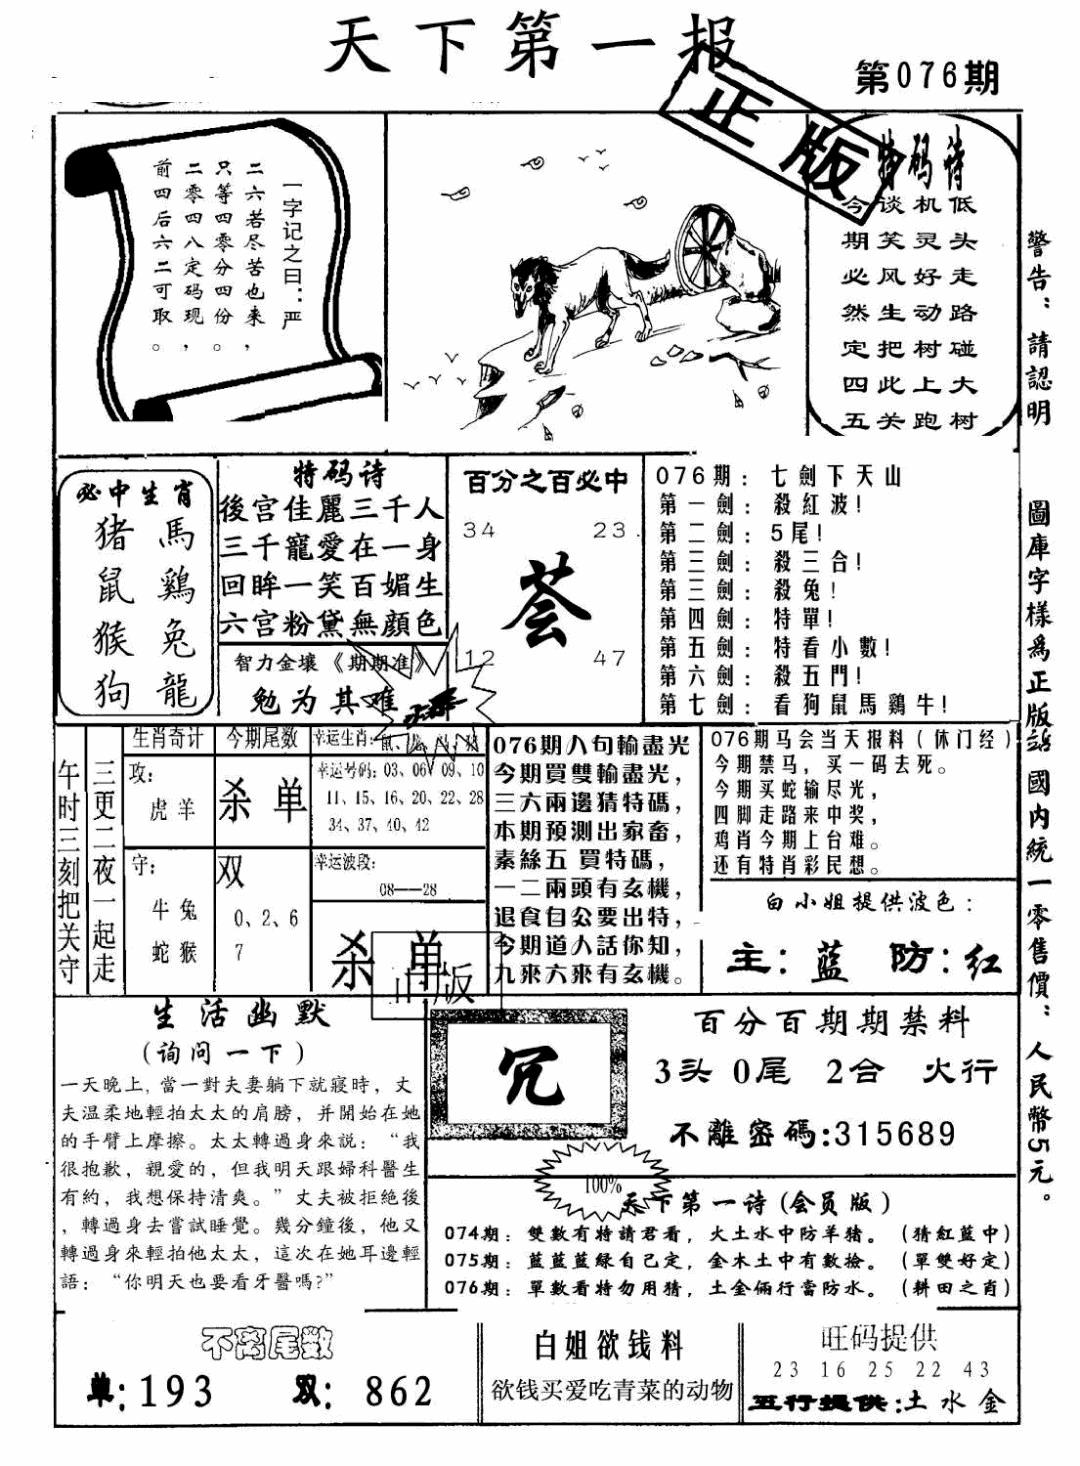 天下第一报
第076期
正版
一字记之曰：严
二六若尽苦也来，
只等四零分四份。
二零四八定码现，
前四后六二可取。
特码诗
低头走路碰大树
机灵好动树上跑
谈笑风生把此关
今期必然定四五
警告：請認明
圖庫字樣爲正版
國内統一零售價：人民幣5元。
必中生肖
猪 馬
鼠 鷄
猴 兔
狗 龍
特码诗
後宫佳麗三千人
三千寵愛在一身
回眸一笑百媚生
六宫粉黛無顔色
智力金壤《期期准》
勉为其难
百分之百必中
34 23
荟
12 47
076期：七劍下天山
第一劍：殺紅波！
第二劍：5尾！
第三劍：殺三合！
第三劍：殺兔！
第四劍：特單！
第五劍：特看小數！
第六劍：殺五門！
第七劍：看狗鼠馬鷄牛！
午时三刻把关守
三更二夜一起走
生肖奇计
攻：
虎羊
守：
牛兔
蛇猴
今期尾数
杀单
双
0、2、6
7
幸运生肖：
幸运号码：03、06、09、10
11、15、16、20、22、28
34、37、40、42
幸运波段：
08——28
杀单
正版
076期八句輸盡光
今期買雙輸盡光，
三六兩邊猜特碼，
本期預測出家畜，
素絲五買特碼，
一二兩頭有玄機，
退食自公要出特，
今期道人話你知，
九來六來有玄機。
076期马会当天报料（休门经）
今期禁马，买一码去死。
今期买蛇输尽光，
四脚走路来中奖，
鸡肖今期上台难。
还有特肖彩民想。
白小姐提供波色：
主：蓝 防：红
生活幽默
（询问一下）
一天晚上，當一對夫妻躺下就寢時，丈
夫温柔地輕拍太太的肩膀，并開始在她
的手臂上摩擦。太太轉過身來説：“我
很抱歉，親愛的，但我明天跟婦科醫生
有約，我想保持清爽。”丈夫被拒絶後
，轉過身去嘗試睡覺。幾分鐘後，他又
轉過身來輕拍他太太，這次在她耳邊輕
語：“你明天也要看牙醫嗎?”
冗
百分百期期禁料
3头 0尾 2合 火行
不離密碼:315689
100%
天下第一诗（会员版）
074期：雙數有特請君看，火土水中防羊猪。（猜紅藍中）
075期：藍藍藍緑自己定，金木土中有數撿。（單雙好定）
076期：單數看特勿用猜，土金倆行當防水。（耕田之肖）
不离尾数
单:193 双:862
白姐欲钱料
欲钱买爱吃青菜的动物
旺码提供
23 16 25 22 43
五行提供:土水金